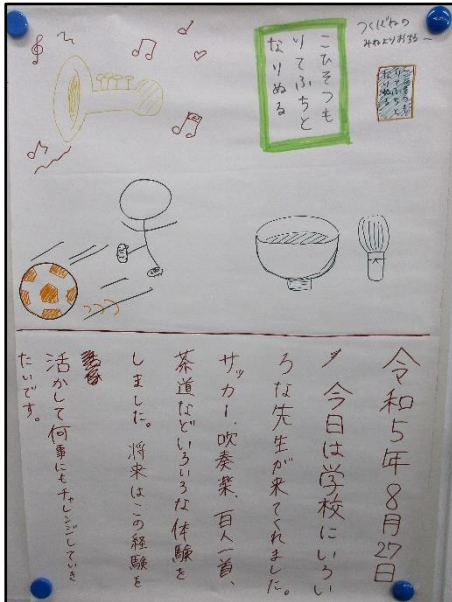 つくばねの
みねよりおつるー
こひそつも
りてふちと
なりぬる
こひそつも
りてふちと
なりぬる
令和5年8月27日
今日は学校にいろい
ろな先生が来てくれました。
サッカー、吹奏楽、百人一首、
茶道などいろいろな体験を
しました。将来はこの経験を
活かして何事にもチャレンジしていき
たいです。